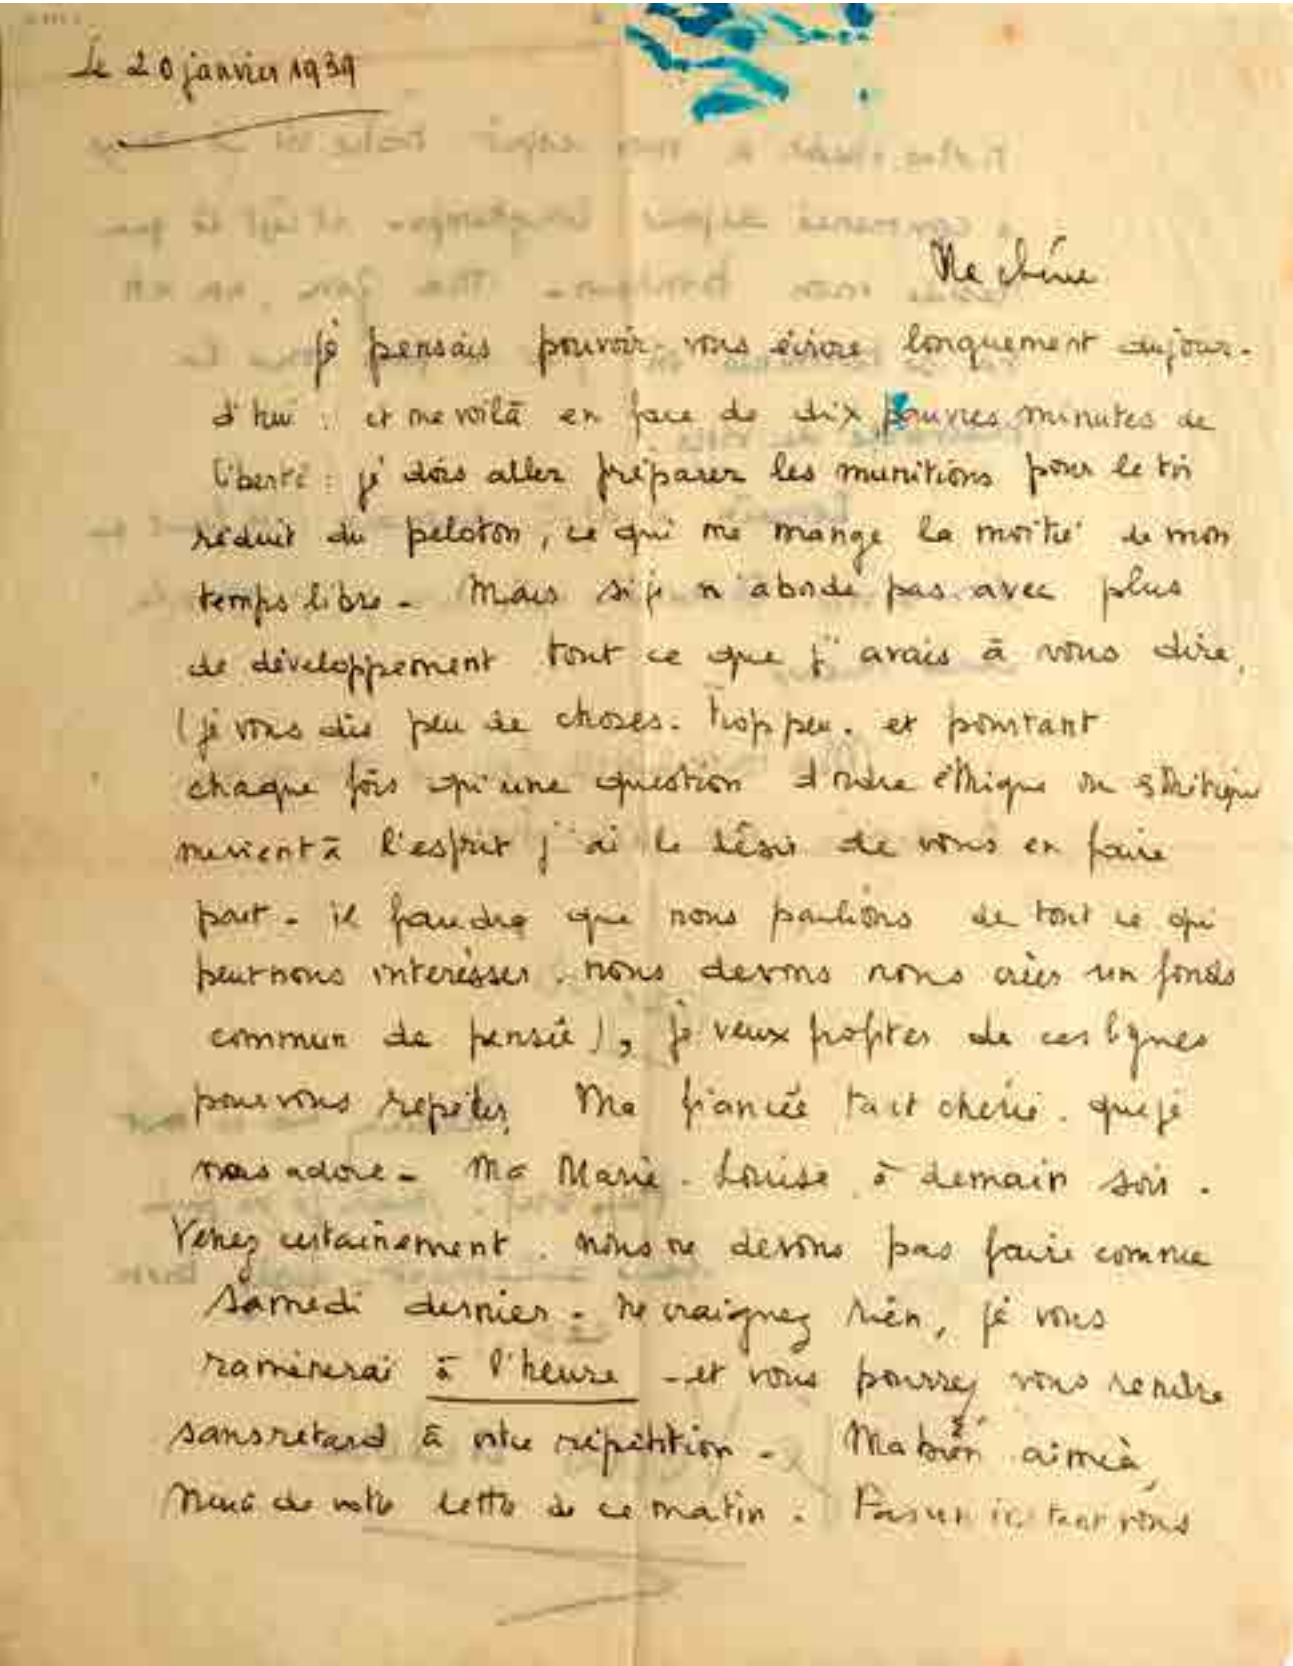 Le 20 janvier 1939
Ma chérie
Je pensais pouvoir vous écrire longuement aujour-
d'hui : et me voilà en face de dix pauvres minutes de
liberté : je dois aller préparer les munitions pour le tir
réduit du peloton, ce qui me mange la moitié de mon
temps libre - Mais si je n'aborde pas avec plus
de développement tout ce que j'avais à vous dire,
(je vous dis peu de choses. Trop peu. et pourtant
chaque fois qu'une question d'ordre éthique ou esthétique
me vient à l'esprit j'ai le désir de vous en faire
part - il faudra que nous parlions de tout ce qui
peut nous intéresser. nous devons nous créer un fonds
commun de pensée), je veux profiter de ces lignes
pour vous répéter, Ma fiancée tant chérie. que je
vous adore - Ma Marie-Louise, à demain soir.
Venez certainement. nous ne devons pas faire comme
samedi dernier - ne craignez rien, je vous
ramènerai à l'heure - et vous pourrez vous rendre
sans retard à votre répétition - Ma bien aimée,
Merci de votre lettre de ce matin. Pas un instant vous